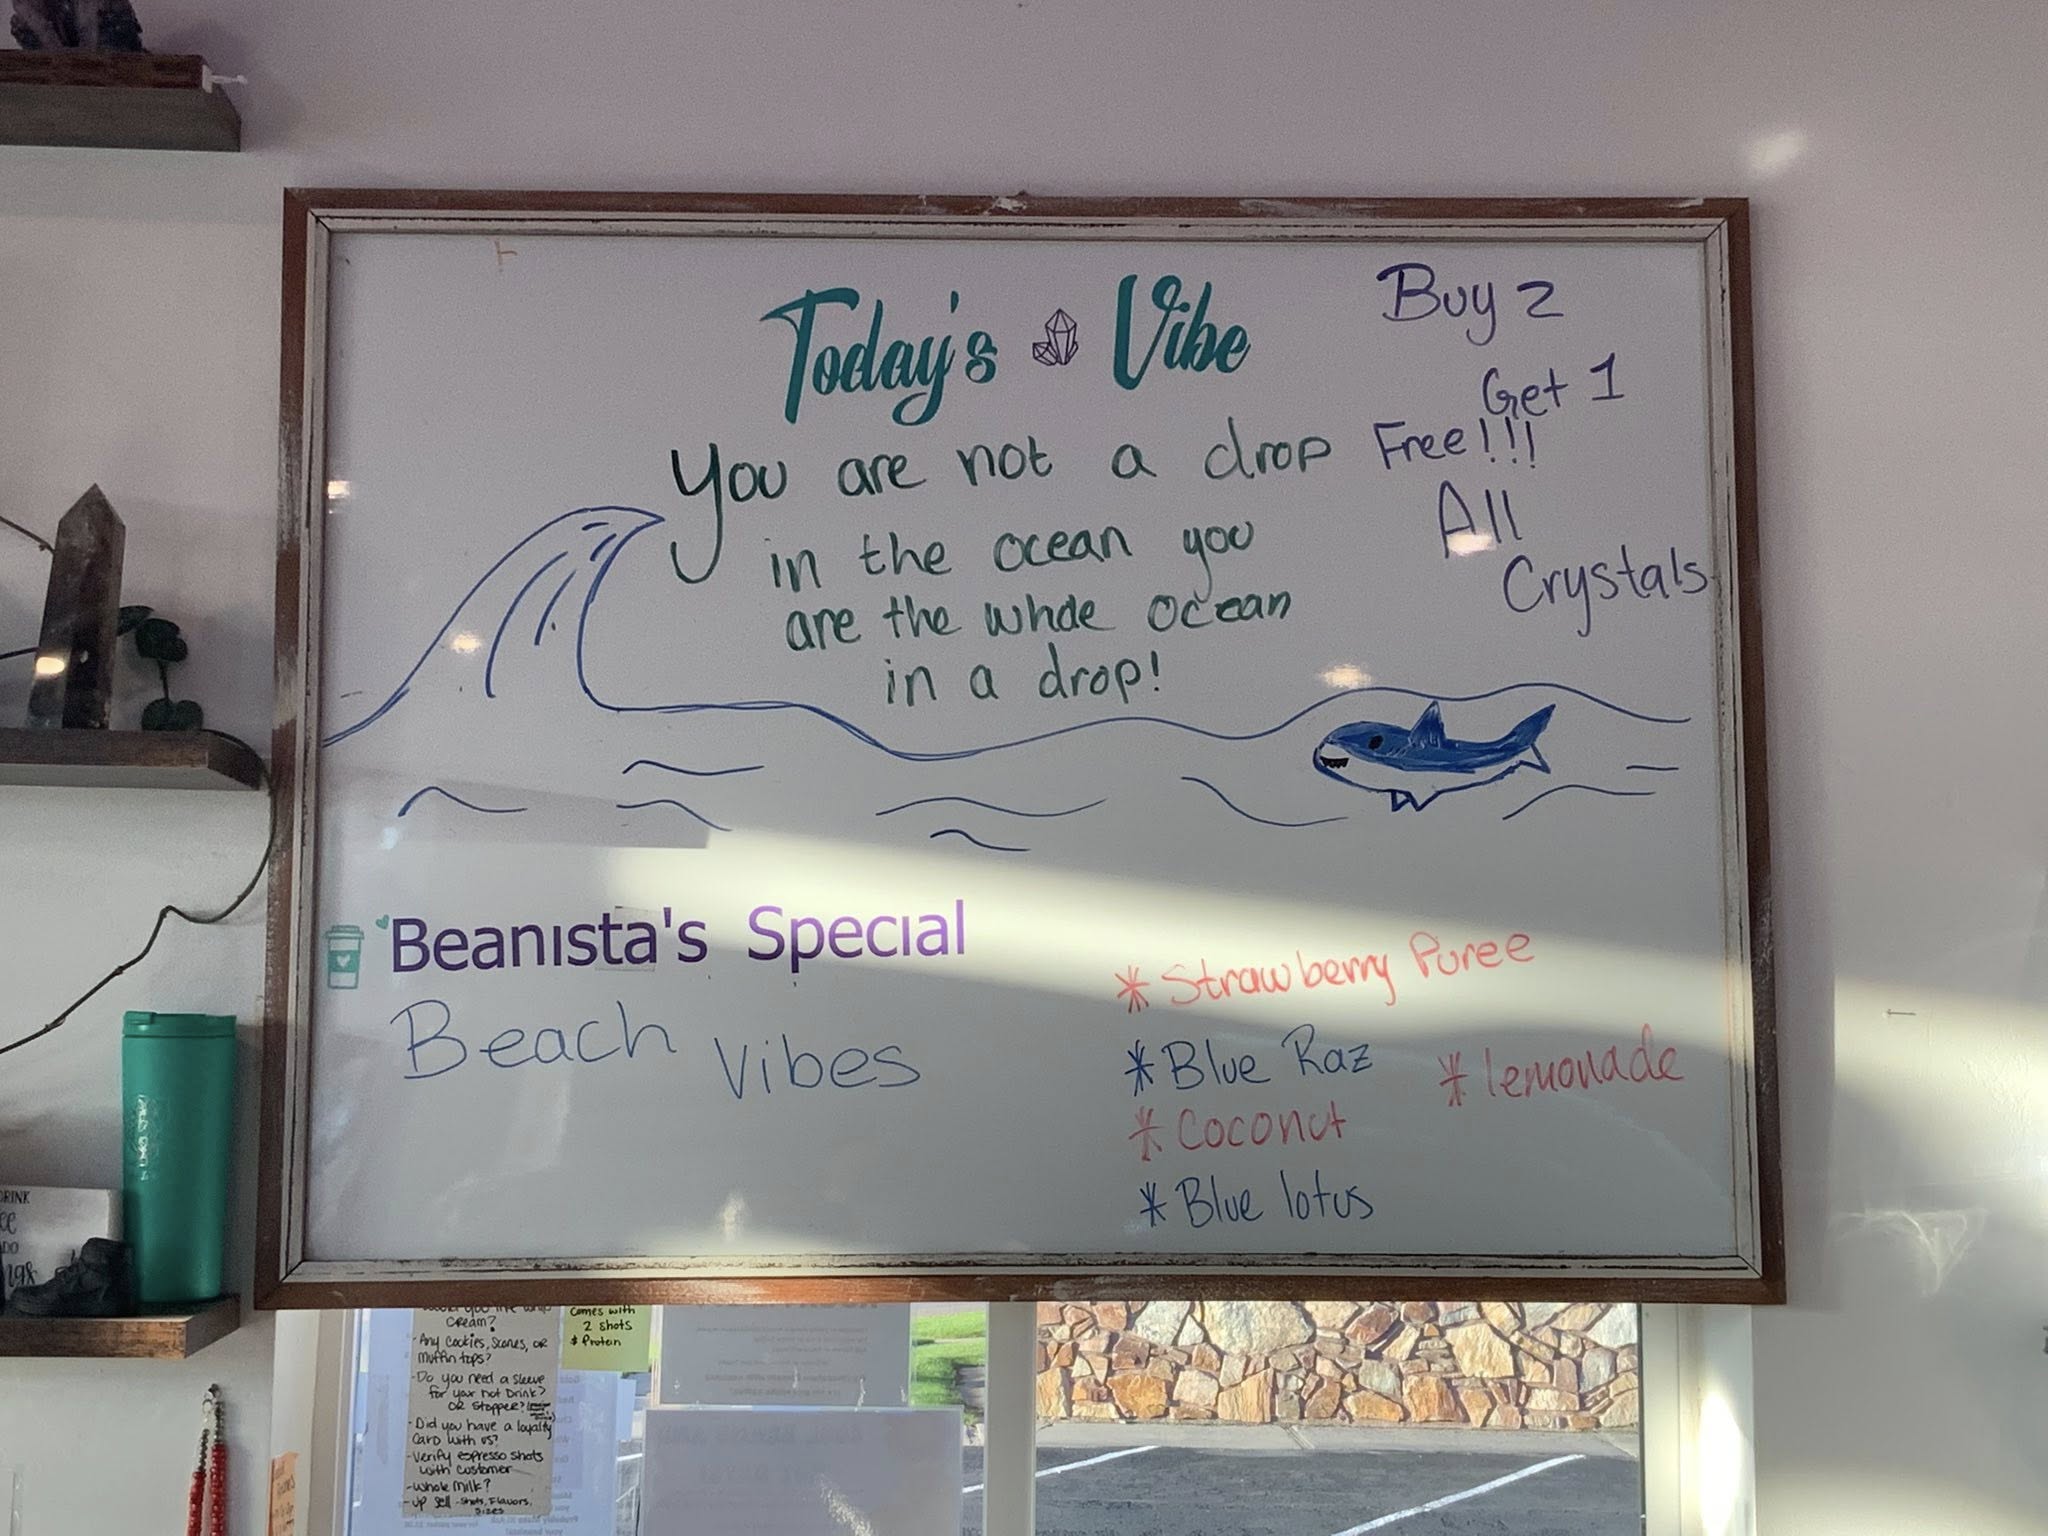 Today's Vibe
You are not a drop
in the ocean you
are the whole ocean
in a drop!
Buy 2
Get 1
Free!!!
All
Crystals
Beanista's Special
Beach Vibes
* Strawberry Puree
* Blue Raz
* lemonade
* Coconut
* Blue lotus
DRINK
Would you like whip
cream?
- Any cookies, scones, or
muffin tops?
- Do you need a sleeve
for your hot drink?
or stopper?
- Did you have a loyalty
card with us?
- Verify espresso shots
with customer
- whole milk?
- up sell - shots, flavors,
sizes
comes with
2 shots
& Protein